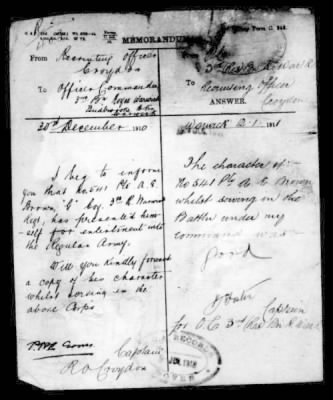 MEMORANDUM
Army Form C. 348.
From Recruiting Officer
Croydon
To Officer Commanding
3rd Bn Royal Warwick
Warwick
30th December 1910
I beg to inform
you that No 541 Pte A. E.
Brown, "G" Coy. 3rd R. Warwick
Regt. has presented him-
self for enlistment into
the Regular Army.
Will you kindly forward
a copy of his character
whilst serving in the
above Corps
Captain
R.O. Croydon
From
3rd Res Bn R. Warwick
To Recruiting Officer
Croydon
ANSWER.
Warwick 2.1.1911
The character of
No 541 Pte A. E. Brown
whilst serving in the
Battn under my
command was
Good
Captain
for O.C. 3rd Res Bn R. Warwick
RECORD